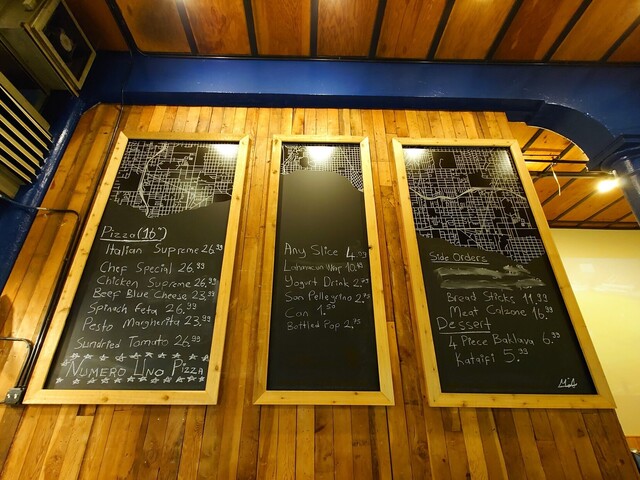 Pizza (16")
Italian Supreme 26.99
Chef Special 26.99
Chicken Supreme 26.99
Beef Blue Cheese 23.99
Spinach Feta 26.99
Pesto Margherita 23.99
Sundried Tomato 26.99
Numero Uno Pizza
Any Slice 4.99
Lahmacun Wrap 10.95
Yogurt Drink 2.75
San Pellegrino 2.75
Can 1.50
Bottled Pop 2.75
Side Orders
Bread Sticks 11.99
Meat Calzone 16.99
Dessert
4 Piece Baklava 6.99
Kataifi 5.99